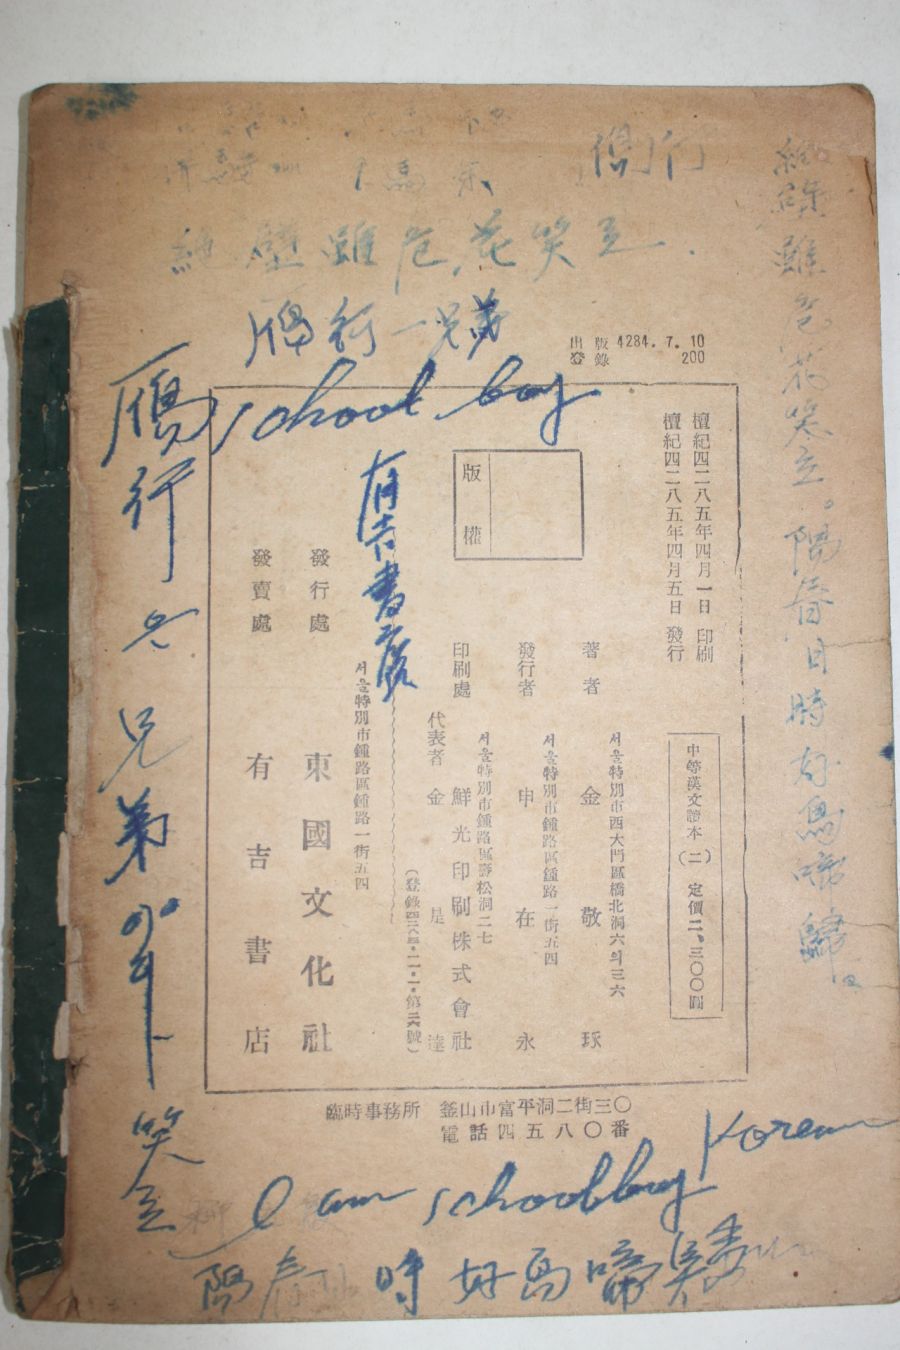 絶壁雖危花笑立
雁行
兄弟
school boy
出版 4284.7.10
登錄 200
檀紀四二八五年四月一日 印刷
檀紀四二八五年四月五日 發行
中等漢文讀本(二) 定價二、三〇〇圓
版權
著者 金敬琢
서울特別市西大門區橋北洞六의三六
發行者 申在永
서울特別市鍾路區鍾路一街五四
印刷處 鮮光印刷株式會社
서울特別市鍾路區壽松洞二七
代表者 金是達
發行處 東國文化社
서울特別市鍾路區鍾路一街五四
發賣處 有吉書店
有吉書店
臨時事務所 釜山市富平洞二街三〇
電話四五八〇番
雖危花笑立。陽春日時好鳥啼歸
雁行 兄弟
笑立
I am schoolboy Korean
陽春 時好鳥啼